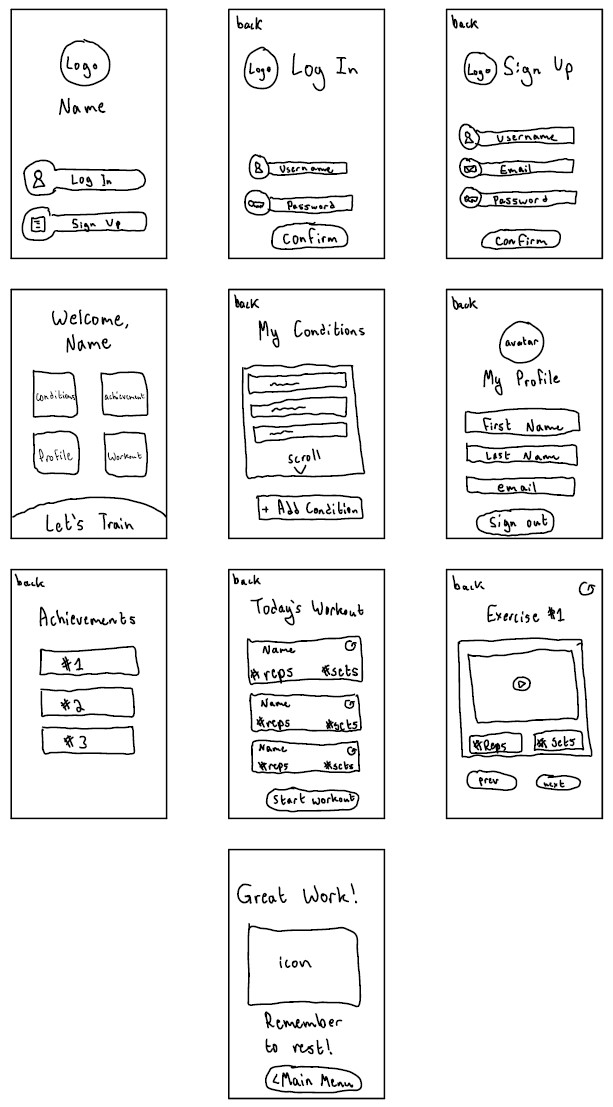 Logo
Name
Log In
Sign Up
back
Logo Log In
Username
Password
Confirm
back
Logo Sign Up
Username
Email
Password
Confirm
Welcome,
Name
Conditions achievement
Profile Workout
Let's Train
back
My Conditions
scroll
+ Add Condition
back
avatar
My Profile
First Name
Last Name
email
Sign out
back
Achievements
#1
#2
#3
back
Today's Workout
Name
#reps #sets
Name
#reps #sets
Name
#reps #sets
Start Workout
back
Exercise #1
#Reps # Sets
prev next
Great Work!
icon
Remember
to rest!
<Main Menu